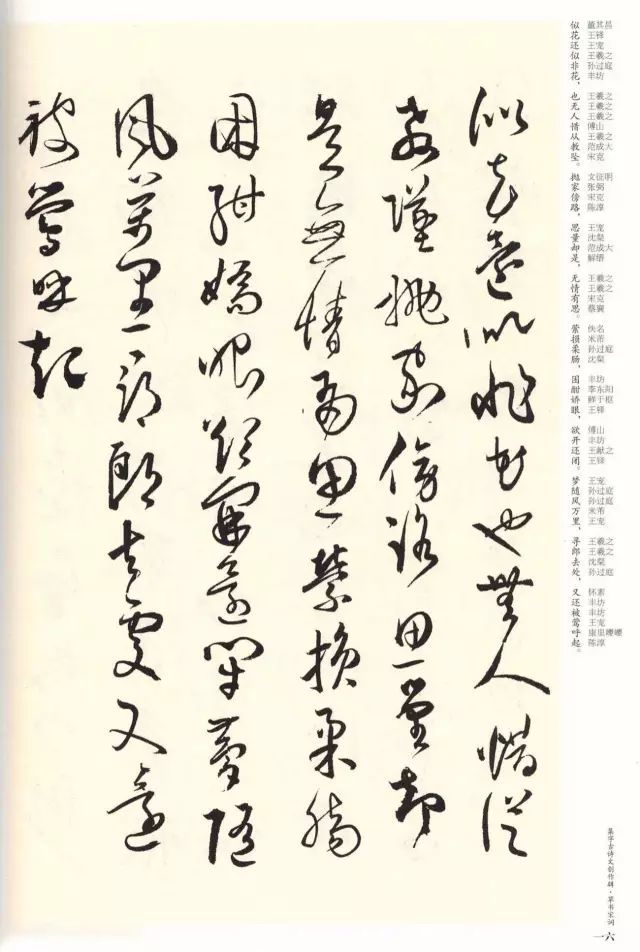 似花還似非花也無人惜從
教墜拋家傍路思量却
是無情有思縈損柔腸
困酣嬌眼欲開還閉夢隨
風萬里尋郎去處又還
被鶯呼起
似 董其昌
花 王铎
还 王宠
似 王羲之
非 孙过庭
花， 丰坊
也 王羲之
无 王羲之
人 王羲之
惜 傅山
从 王羲之
教 范成大
坠。 宋克
抛 文征明
家 张弼
傍 宋克
路， 陈淳
思 王宠
量 沈粲
却 范成大
是， 解缙
无 王羲之
情 王羲之
有 宋克
思。 蔡襄
萦 佚名
损 米芾
柔 孙过庭
肠， 沈粲
困 丰坊
酣 李东阳
娇 鲜于枢
眼， 王铎
欲 傅山
开 丰坊
还 王献之
闭。 王铎
梦 王宠
随 孙过庭
风 孙过庭
万 米芾
里， 王宠
寻 王羲之
郎 王羲之
去 沈粲
处， 孙过庭
又 怀素
还 丰坊
被 丰坊
莺 王宠
呼 康里巎巎
起。 陈淳
集字古诗文创作辑·草书宋词
一六